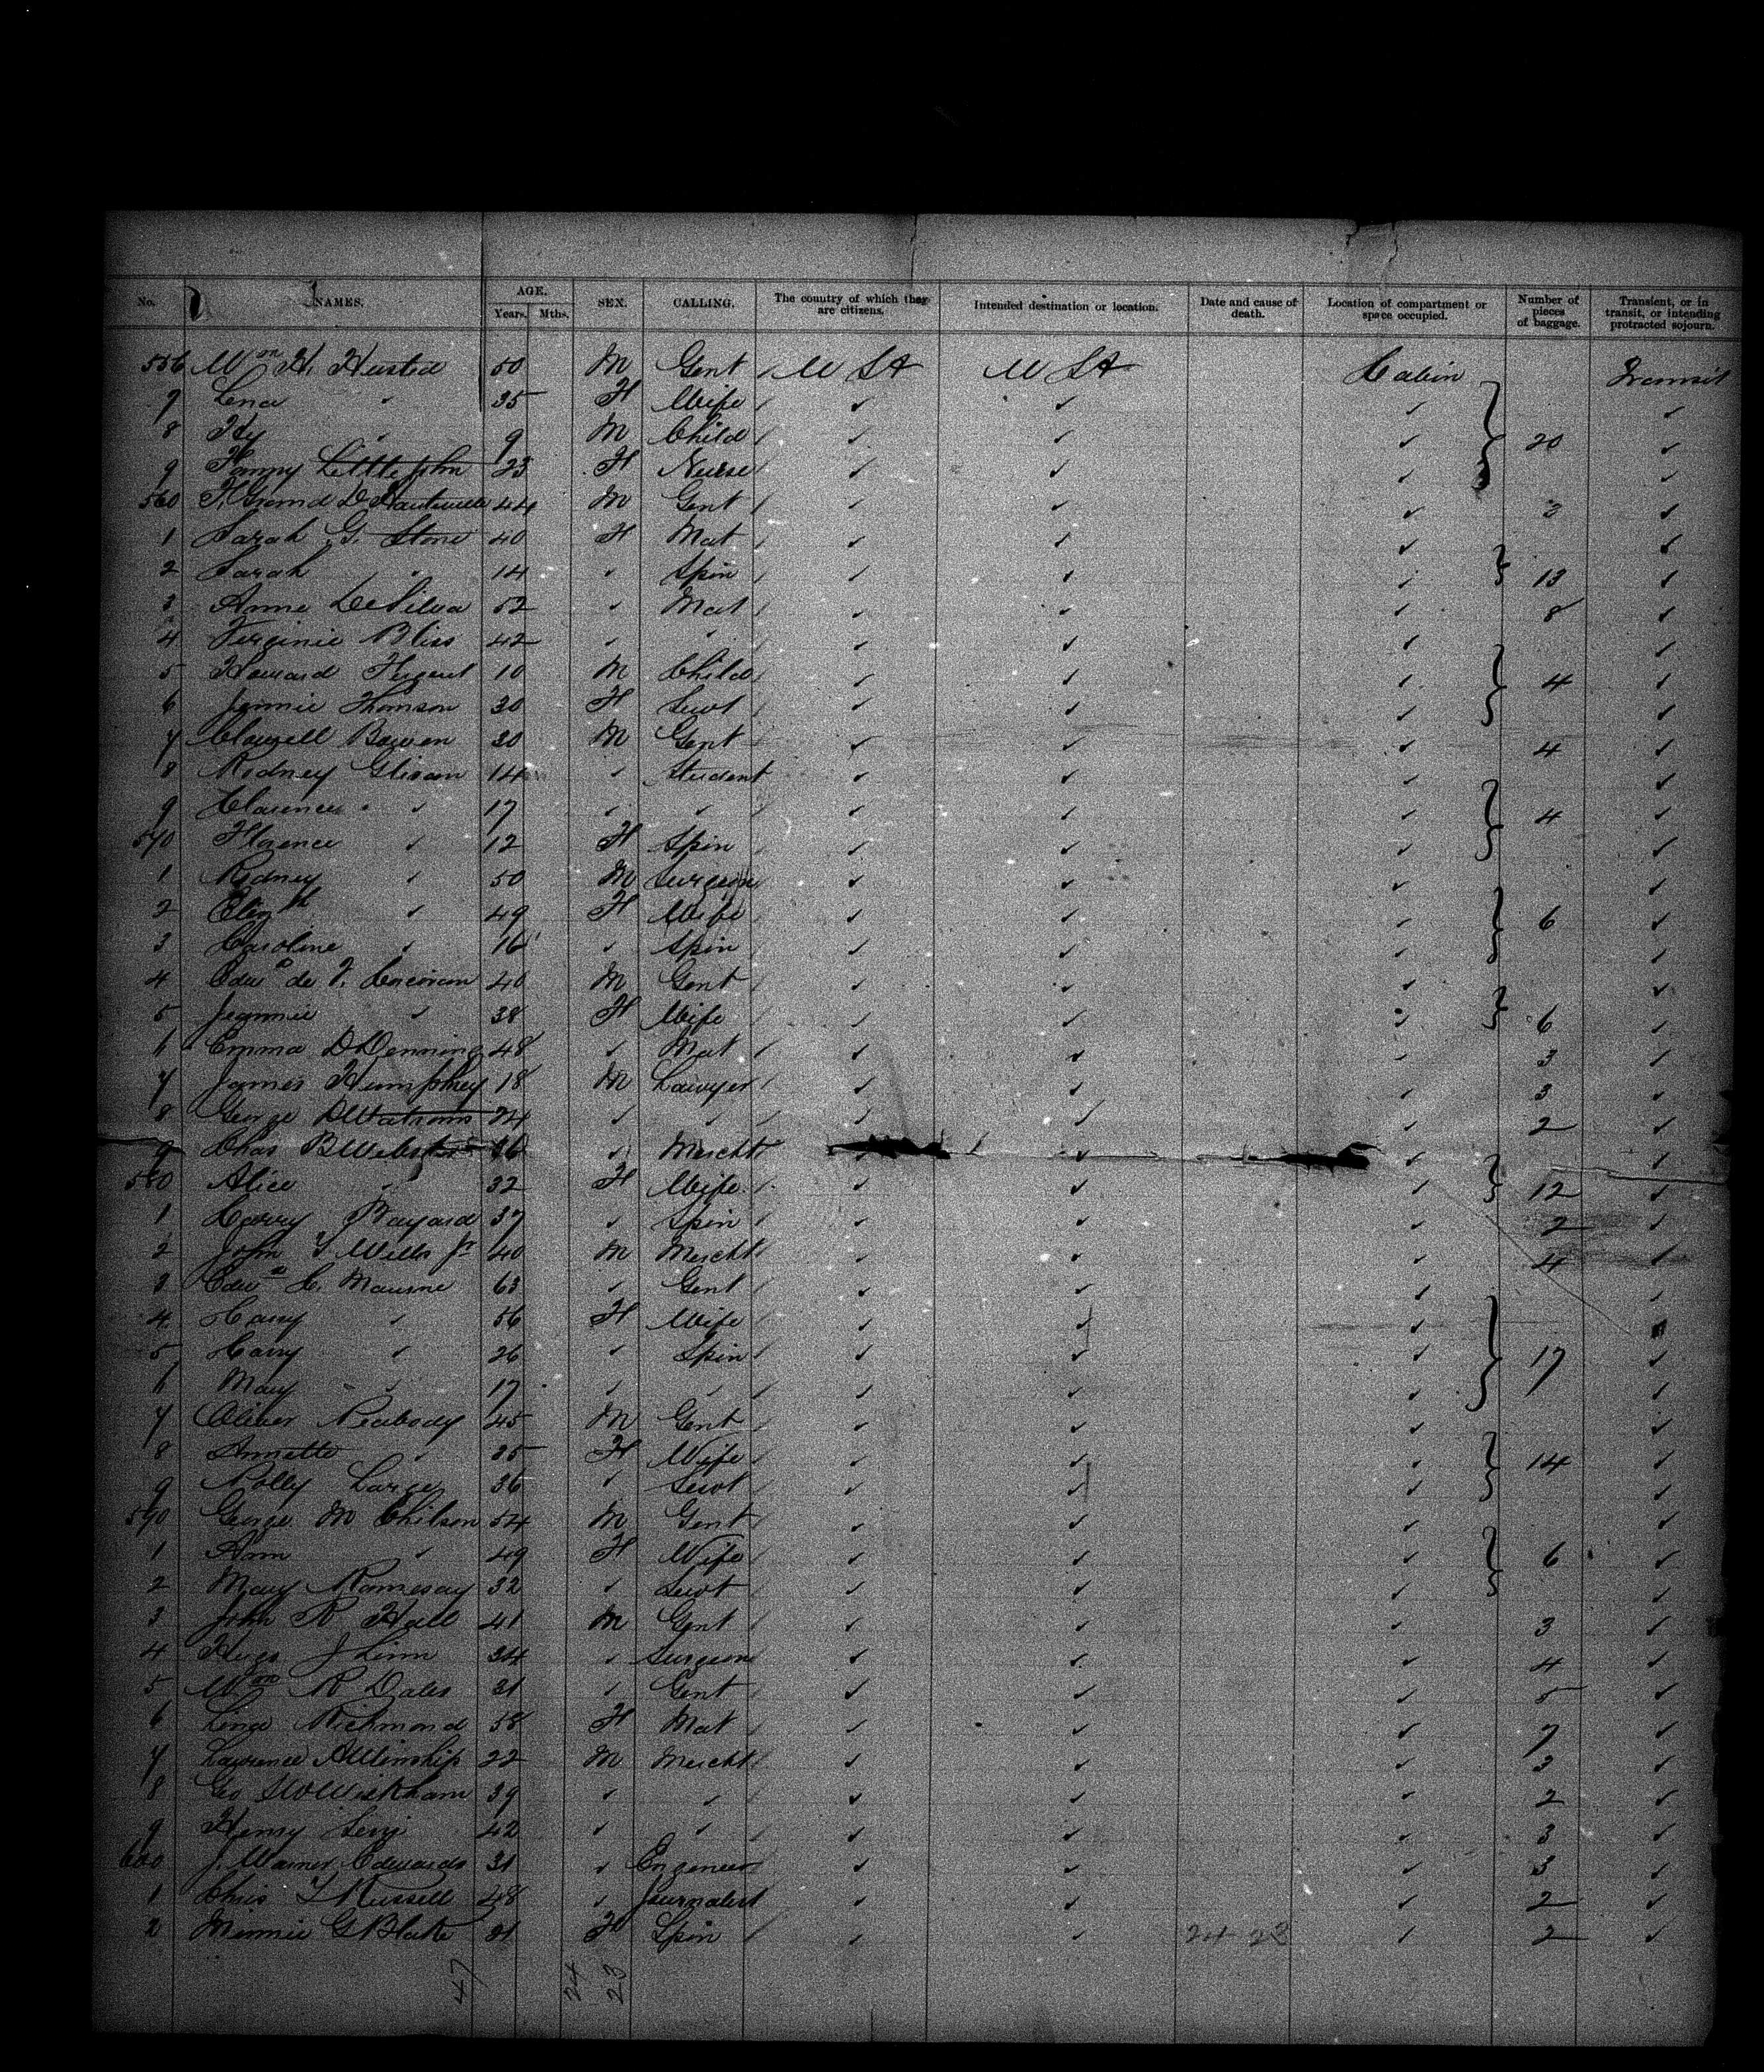 No. NAMES. AGE. Years. Mths. SEX. CALLING. The country of which they are citizens. Intended destination or location. Date and cause of death. Location of compartment or space occupied. Number of pieces of baggage. Transient, or in transit, or intending protracted sojourn.
556 Wm H. Husted 50 M Gent U St U St Cabin Transit
7 Lena " 35 F Wife ✓ ✓ ✓ ✓
8 Hy " 9 M Child ✓ ✓ ✓ 20 ✓
9 Fanny Littlejohn 23 F Nurse ✓ ✓ ✓ ✓
560 F. Grand D'Hauteville 44 M Gent ✓ ✓ ✓ 3 ✓
1 Sarah G. Stone 40 F Mat ✓ ✓ ✓ ✓
2 Sarah " 14 " Spin ✓ ✓ ✓ 13 ✓
3 Anna DeSilva 52 " Mat ✓ ✓ ✓ 8 ✓
4 Virginie Bliss 42 " " ✓ ✓ ✓ ✓
5 Howard 10 M Child ✓ ✓ ✓ 4 ✓
6 Jennie Thomson 30 F Servt ✓ ✓ ✓ ✓
7 Bowen 30 M Gent ✓ ✓ ✓ 4 ✓
8 Rodney Glisan 14 " Student ✓ ✓ ✓ ✓
9 Clarence " 17 " " ✓ ✓ ✓ 4 ✓
570 Florence " 12 F Spin ✓ ✓ ✓ ✓
1 Rodney " 50 M Surgeon ✓ ✓ ✓ ✓
2 Elizth " 49 F Wife ✓ ✓ ✓ 6 ✓
3 Caroline " 16 " Spin ✓ ✓ ✓ ✓
4 Edwd de V. 40 M Gent ✓ ✓ ✓ ✓
5 Jeannie " 38 F Wife ✓ ✓ ✓ 6 ✓
6 Emma D Denning 48 " Mat ✓ ✓ ✓ 3 ✓
7 James Humphrey 18 M Lawyer ✓ ✓ ✓ 3 ✓
8 George D Watrous 24 " " ✓ ✓ ✓ 2 ✓
9 Chas B Webster 36 " Mercht ✓ ✓ ✓ ✓
580 Alice " 32 F Wife ✓ ✓ ✓ 12 ✓
1 Carry Bayard 37 " Spin ✓ ✓ ✓ 2 ✓
2 John T Wills Jr 40 M Mercht ✓ ✓ ✓ 4 ✓
3 Edwd C. 63 " Gent ✓ ✓ ✓ ✓
4 Carry " 56 F Wife ✓ ✓ ✓
5 Carry " 26 " Spin ✓ ✓ ✓ 17 ✓
6 May " 17 " " ✓ ✓ ✓ ✓
7 Oliver Peabody 45 M Gent ✓ ✓ ✓ ✓
8 Annette " 35 F Wife ✓ ✓ ✓ 14 ✓
9 Polly Large 36 " Servt ✓ ✓ ✓ ✓
590 George M Chilson 54 M Gent ✓ ✓ ✓ ✓
1 Ann " 49 F Wife ✓ ✓ ✓ 6 ✓
2 May Ramesay 32 " Servt ✓ ✓ ✓ ✓
3 John R Hall 41 M Gent ✓ ✓ ✓ 3 ✓
4 Hugo J Linn 34 " Surgeon ✓ ✓ ✓ 4 ✓
5 Wm R Dales 31 " Gent ✓ ✓ ✓ 5 ✓
6 Richmond 58 F Mat ✓ ✓ ✓ 7 ✓
7 Lawrence A Winship 22 M Mercht ✓ ✓ ✓ 3 ✓
8 Geo W Wickham 39 " " ✓ ✓ ✓ 2 ✓
9 Henry Levy 42 " " ✓ ✓ ✓ 3 ✓
600 J. Warner Edwards 31 " Engineer ✓ ✓ ✓ 3 ✓
1 Chris T Russell 28 " Journalist ✓ ✓ ✓ 2 ✓
2 Minnie G Blake 31 F Spin ✓ ✓ 24 23 ✓ 2 ✓
47 24 23